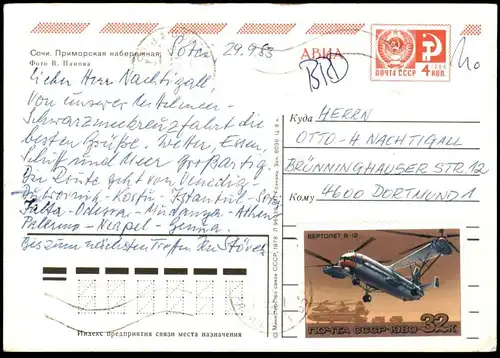 Сочи. Приморская набережная.
Фото В. Панова
Sotchi 29.9.83
АВИА
BRD
ПОЧТА СССР 4 КОП.
Lieber Herr Nachtigall,
Von unserer Mittelmeer-
Schwarzmeerkreuzfahrt die
besten Grüße. Wetter, Essen,
Schiff und Meer großartig.
Die Route geht von Venedig
Korfu - Istanbul -
Jalta - Odessa - Mudanya - Athen
Palermo - Neapel - Genua.
Bis zum nächsten Treffen
Куда HERRN
OTTO-H NACHTIGALL
BRÜNNINGHAUSER STR 12
Кому 4600 DORTMUND 1
Индекс предприятия связи места назначения
© Министерство связи СССР, 1979
ВЕРТОЛЕТ В-12
ПОЧТА СССР·1980 32К